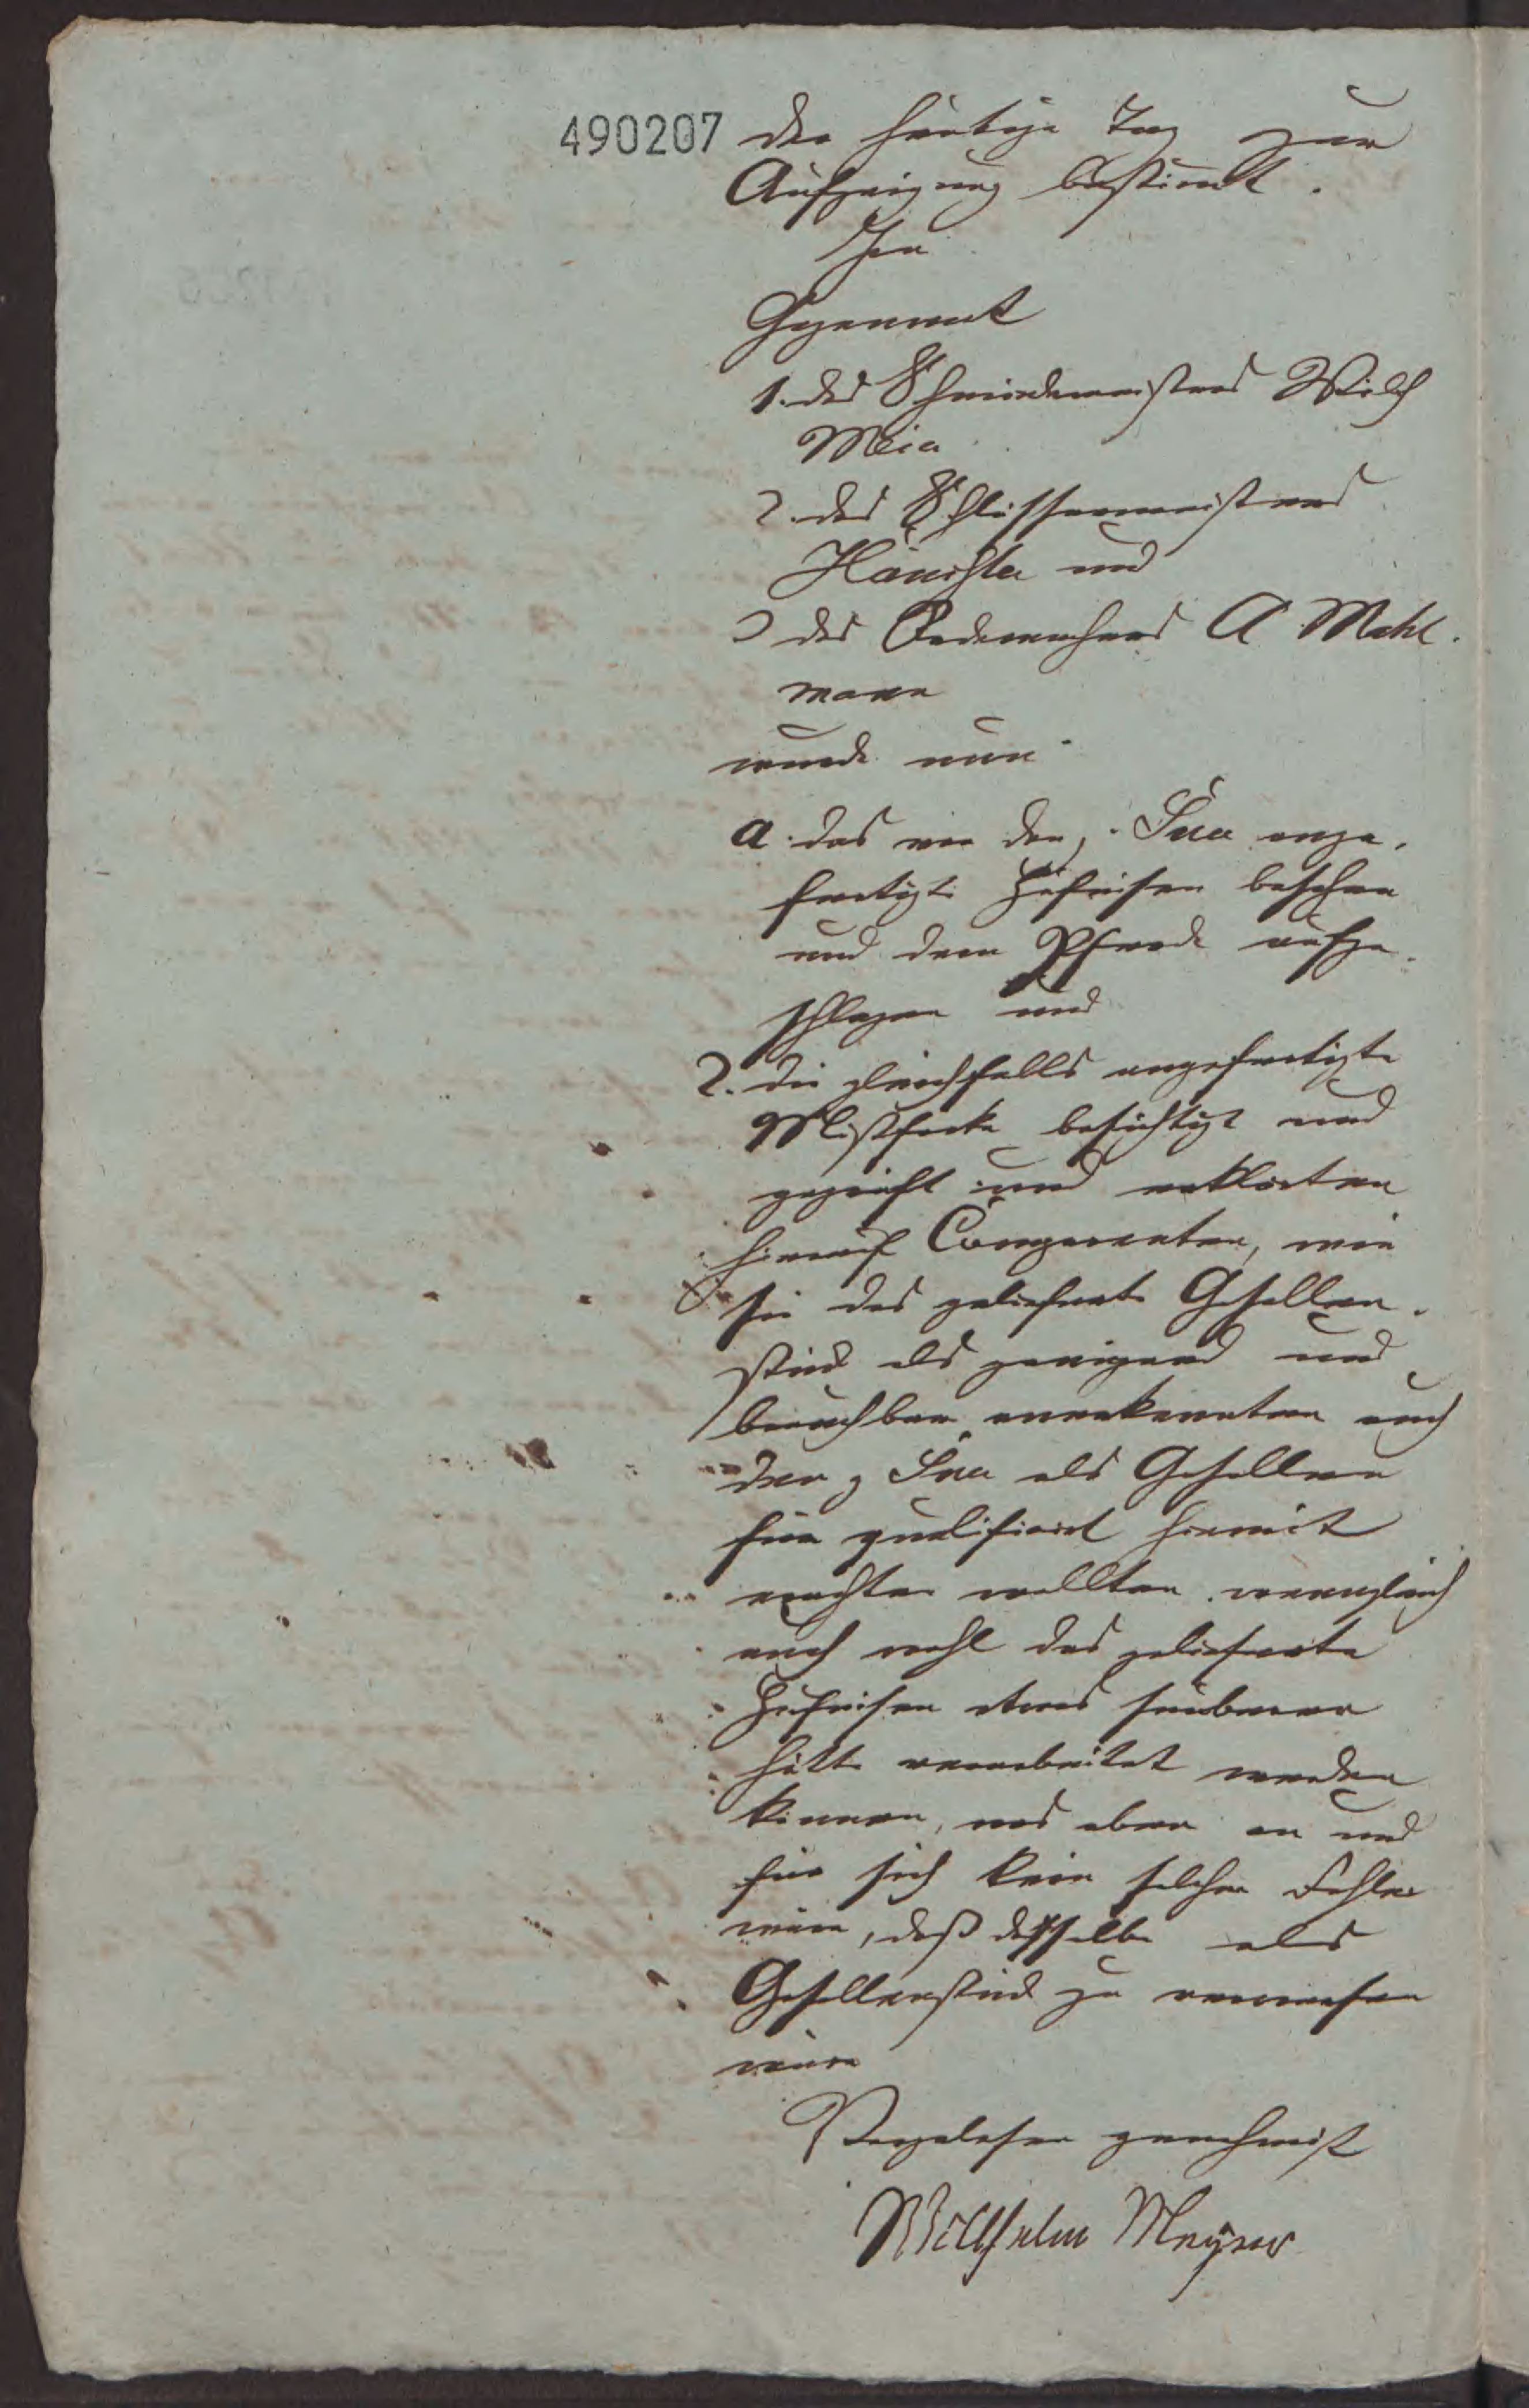 490207 der heutige Tag zur
Aufzeigung bestimmt.
In
Gegenwart
1. des Schmiedemeisters Wilh
Meier
2. des Schlossermeisters
Hänichler und
3 des Rademachers A Mehl-
mann
wurde nun
a. das von dem p. angefertigte
Hufeisen besehen
und dem Pferde aufge-
schlagen und
2. die gleichfalls angefertigte
Mistforke besichtigt und
geprüft und erklärten
hierauf Comparenten, wie
sie das gelieferte Gesellen-
stück als genügend und
brauchbar anerkennten auch
den p als Gesellen
für qualificirt hiermit
erachten wollten, wenngleich
auch wohl das gelieferte
Hufeisen etwas sauberer
hätte verarbeitet werden
können, was aber an und
für sich kein solcher Fehler
wäre, daß dasselbe als
Gesellenstück zu verwerfen
wäre
Vorgelesen genehmigt
Willhelm Meyer